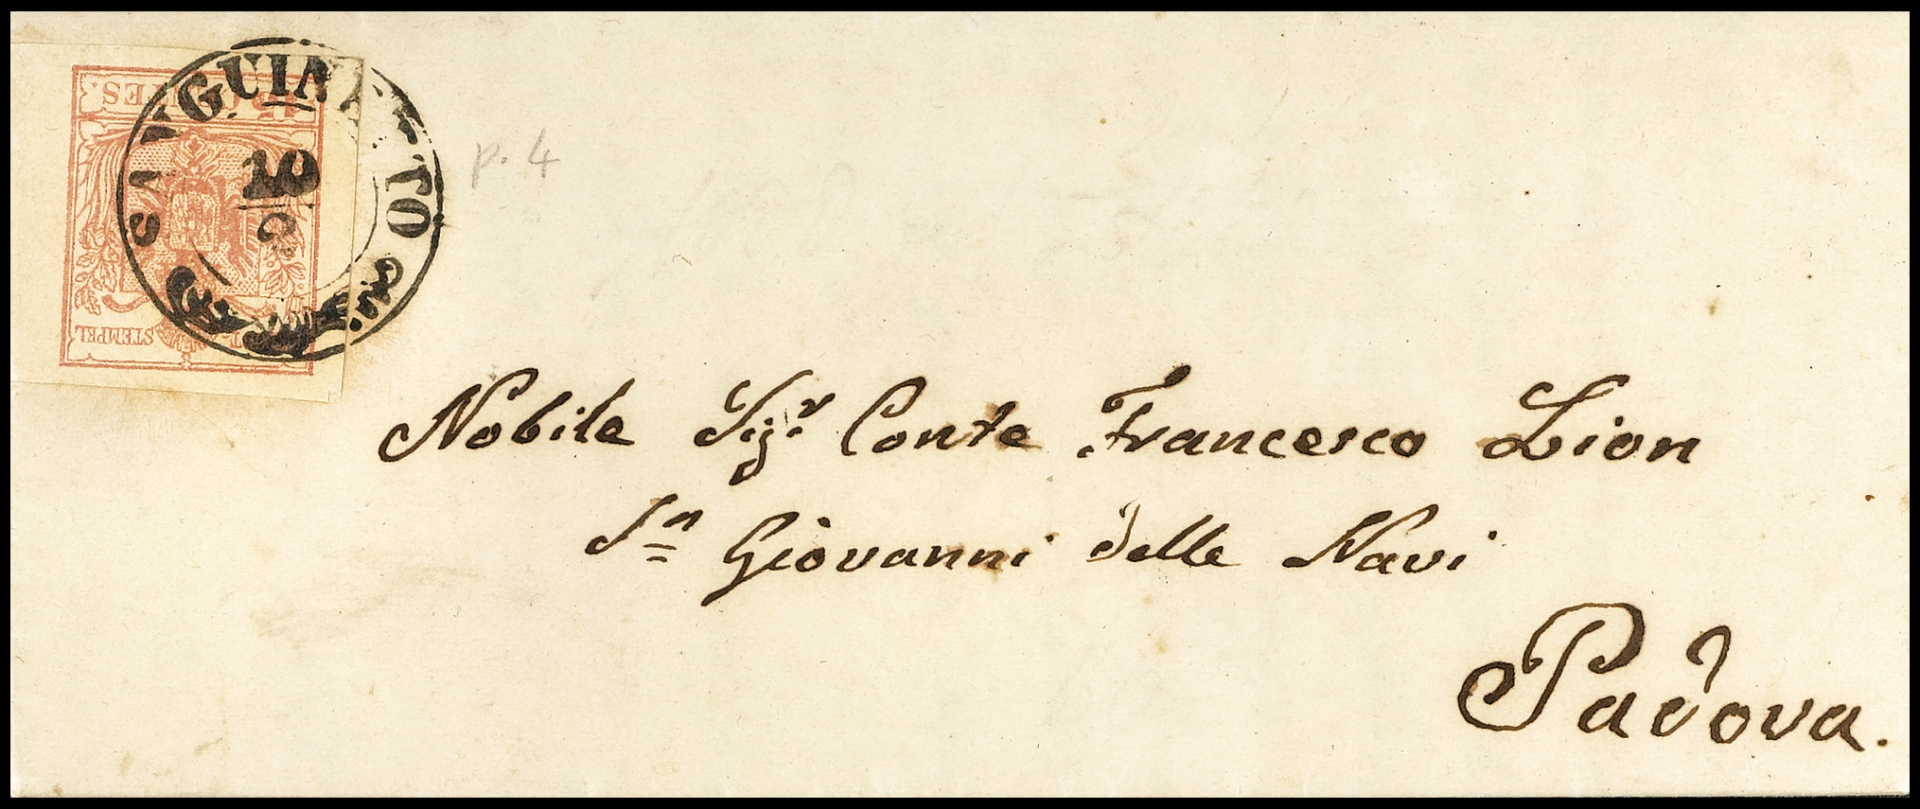 SANGUINETTO
10
p. 4
CENTES
STEMPEL
Nobile Sigr. Conte Francesco Lion
Sn Giovanni delle Navi
Padova.